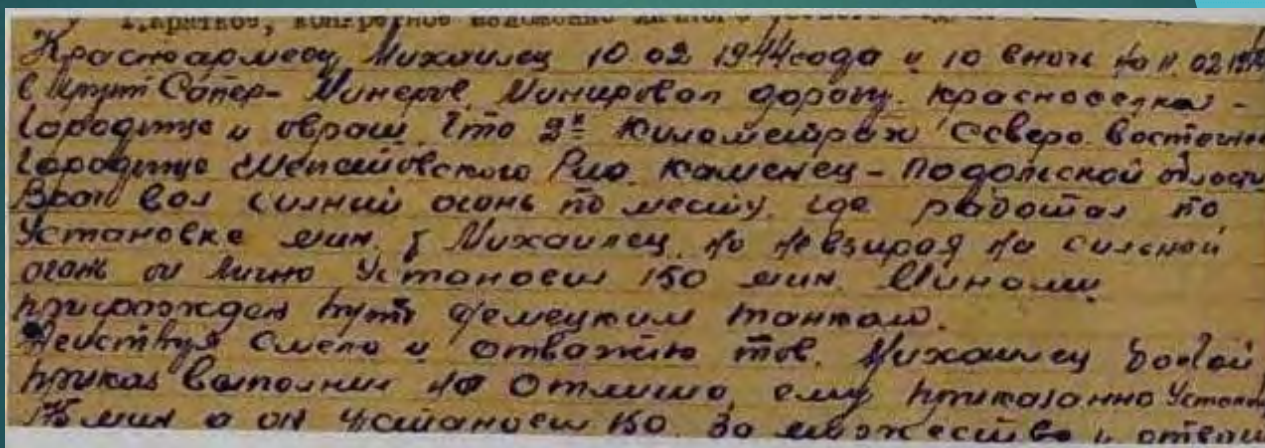 1. краткое, конкретное изложение личного
Красноармеец Михаилец 10.02 1944 года и 10 в ночь на 11.02 1944
Сапер- Минеров. Минировал дорогу. Красноселка-
Городище и овраг, что 2х километрах Северо. Восточне
Городище Шепетовского Р-на. Каменец-Подольской области
Враг вол силний огонь по месту, где работал по
Установке мин. т Михаилец, но невзирая на силений
огонь он лично Устоновил 150 мин. Минами
прегрожден путь Немецким танкам.
Действуя Смело и отважно тов. Михаилец боевой
приказ выполнил на Отлично, ему приказанно Устонов
75 мин а он Устоновил 150. За мужество и отваг